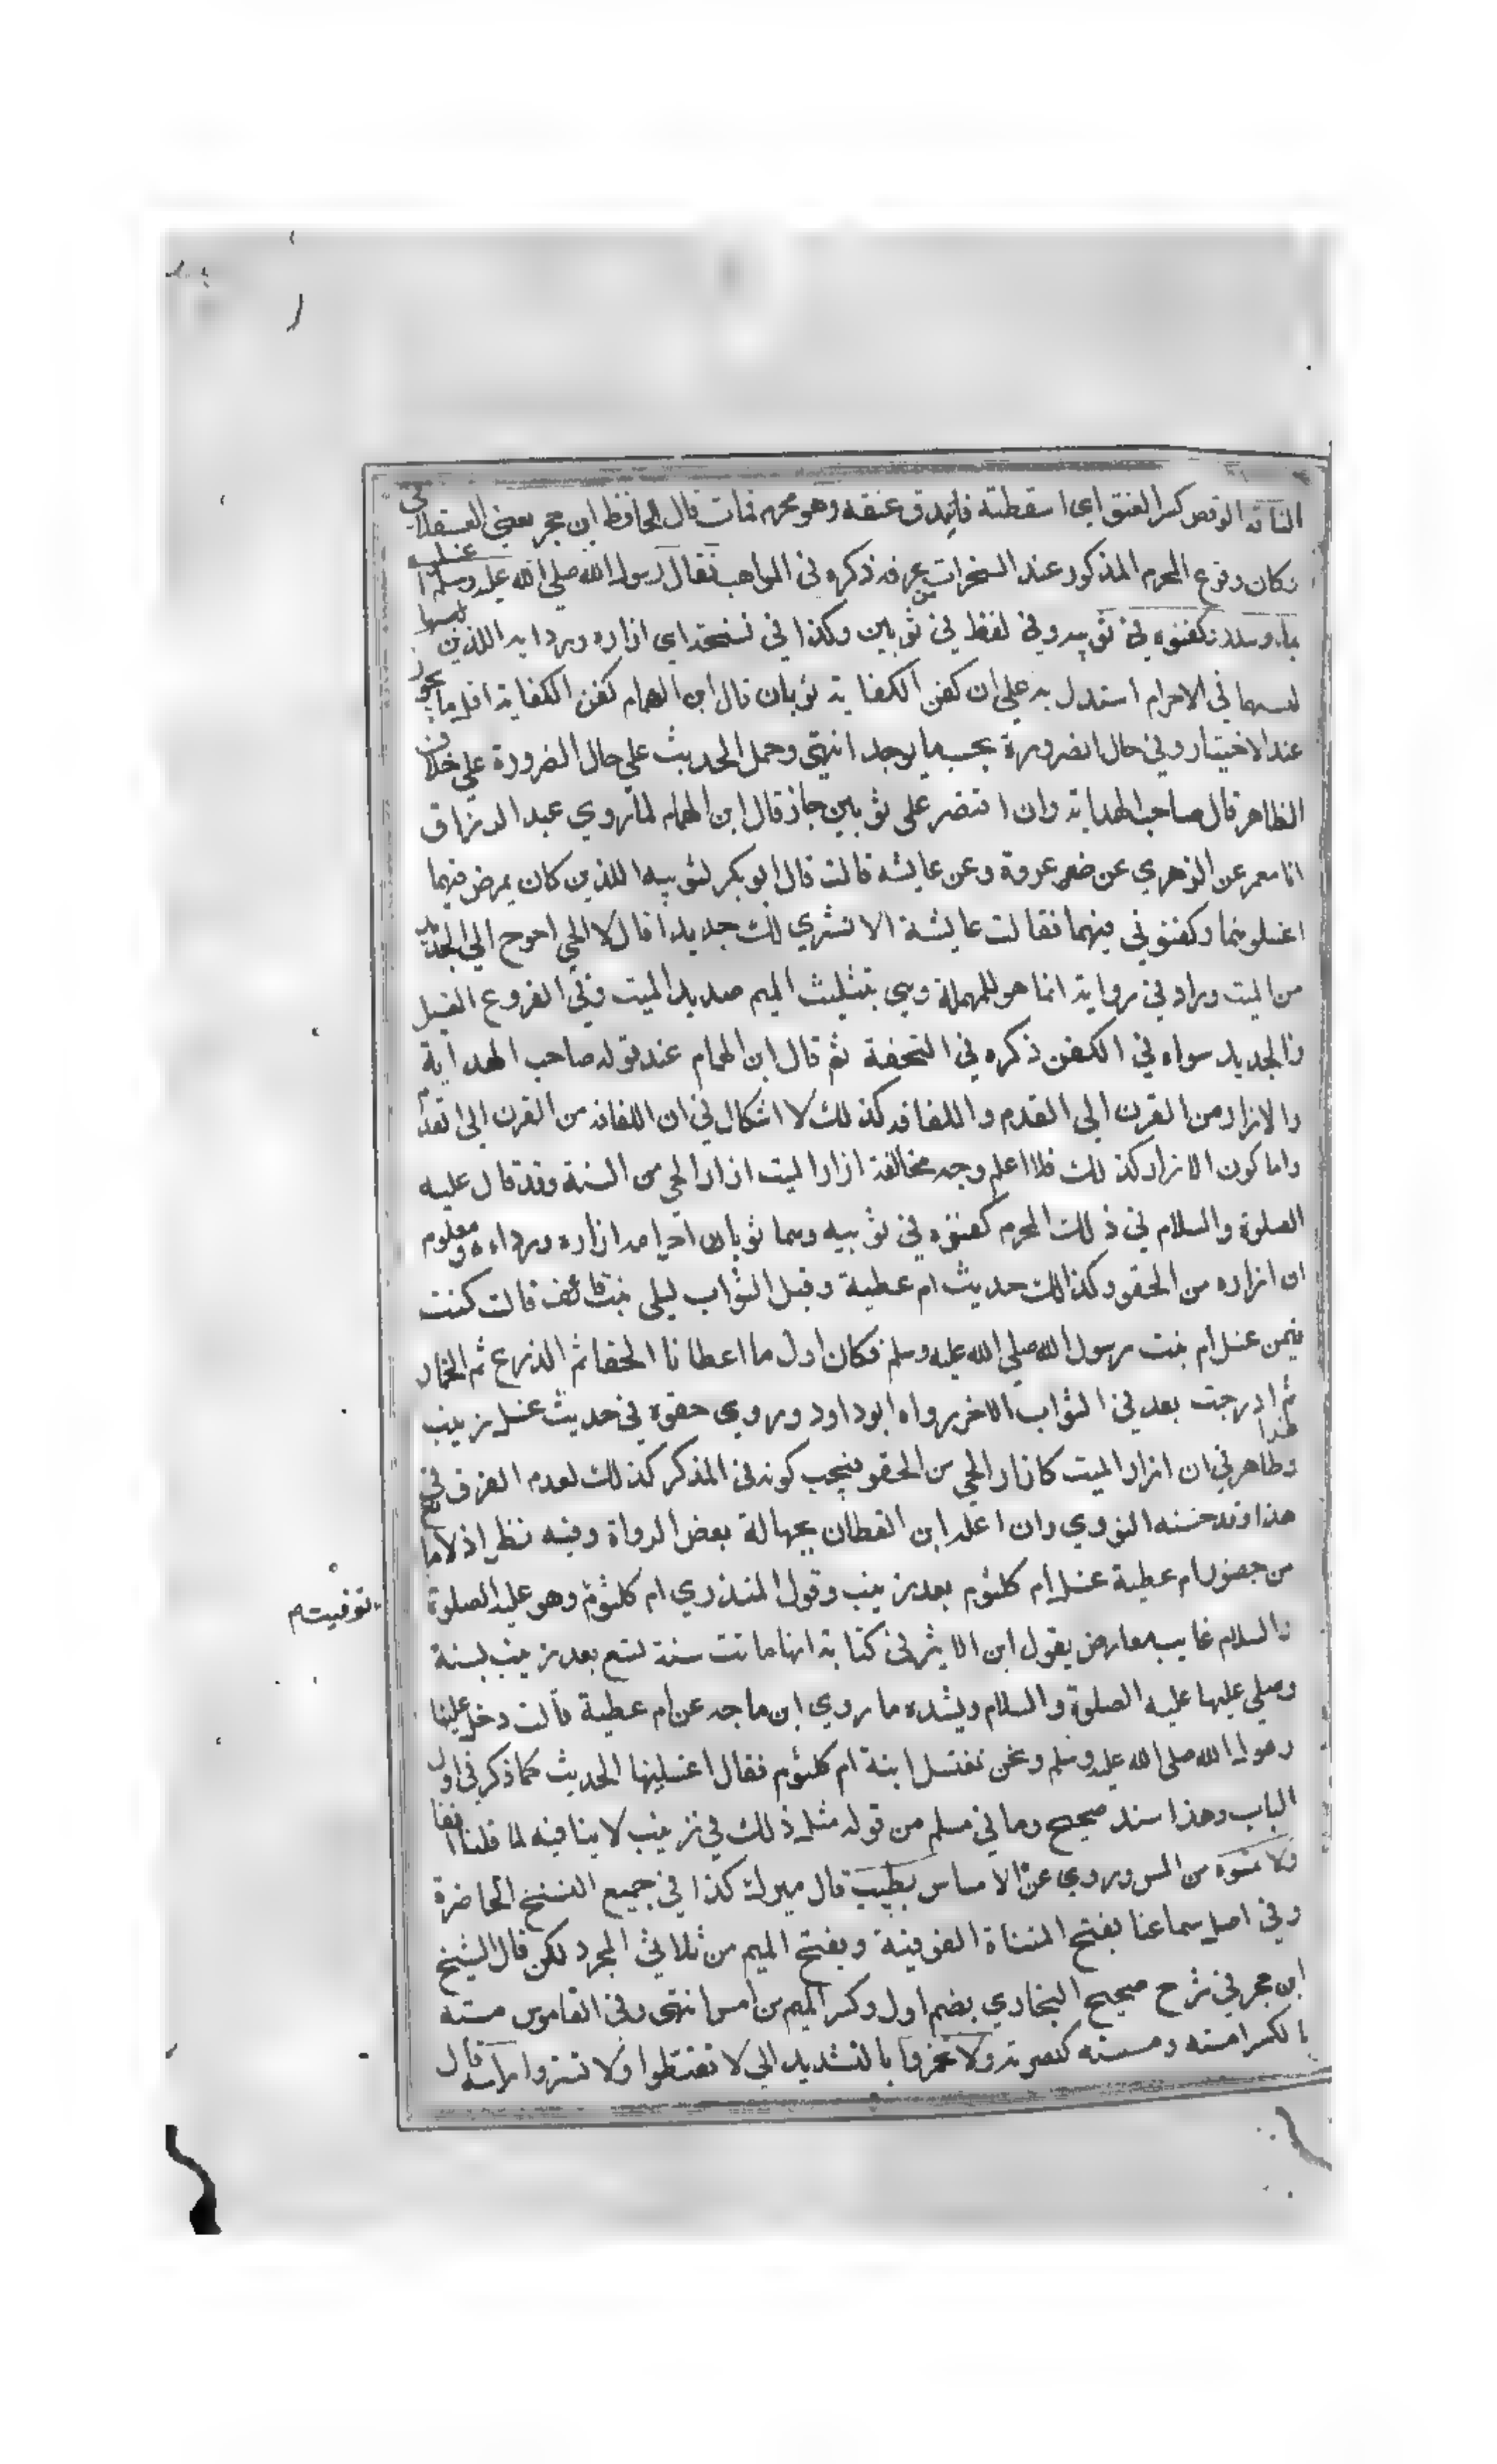 الناقه الوقص كسر العنق اي اسقطته فاندق عنقه وهو محرم فمات قال الحافظ ابن حجر يعني العسقلاني
وكان وقوع المحرم المذكور عند الصخرات من عرفه ذكره في المواهب فقال رسول الله صلي الله عليه وسلم اغسلوه
بماء وسدر وكفنوه في ثوبيه وفي لفظ في ثوبين وكذا في نسخة اي ازاره وردايه اللذين لبسهما
لبسهما في الاحرام استدل به علي ان كفن الكفاية ثوبان قال ابن الهمام كفن الكفاية اقل ما يجوز
عند الاختيار وفي حال الضرورة بحسب ما يوجد انتهي وحمل الحديث علي حال الضرورة علي خلاف
الظاهر قال صاحب الهداية وان اقتصر علي ثوبين جاز قال ابن الهمام لما روي عبد الرزاق
انا معمر عن الزهري عن عروة وعن عايشه قالت قال ابو بكر لثوبيه اللذين كان يمرض فيهما
اغسلوهما وكفنوني فيهما فقالت عايشة الا نشتري لك جديدا قال لا الحي احوج الي الجديد
من الميت وزاد في رواية انما هو للمهملة وهي بتثليث الميم صديد الميت وفي الفروع الغسيل
والجديد سواء في الكفن ذكره في التحفة ثم قال ابن الهمام عند قوله صاحب الهداية
والازار من القرن الي القدم واللفافه كذلك لا اشكال في ان اللفافه من القرن الي القدم
واما كون الازار كذلك فلا اعلم وجه مخالفة ازار الميت ازار الحي من السنة وقد قال عليه
الصلوة والسلام في ذلك المحرم كفنوه في ثوبيه وهما ثوبا احرامه ازاره ورداءه ومعلوم
ان ازاره من الحقو وكذلك حديث ام عطية وقيل الثواب ليلي بنت قائف قالت كنت
فيمن غسل ام بنت رسول الله صلي الله عليه وسلم فكان اول ما اعطانا الحقا ثم الدرع ثم الخمار
ثم ادرجت بعد في الثواب الاخر رواه ابو داود وروي حقوه في حديث غسل زينب
وهذا ظاهر في ان ازار الميت كازار الحي من الحقو فيجب كونه في المذكر كذلك لعدم الفرق في
هذا وقد حسنه النووي وان اعله ابن القطان بجهالة بعض الرواة وفيه نظر اذ لا مانع
من حضور ام عطية غسل ام كلثوم بعد زينب وقول المنذري ام كلثوم وهو عليه الصلوة
توفيت م
والسلام غايب معارض يقول ابن الاثير في كتابة انها ماتت سنة تسع بعد زينب بسنة
وصلي عليها عليه الصلوة والسلام ويشده ما روي ابن ماجه عن ام عطية قالت دخل علينا
رسول الله صلي الله عليه وسلم ونحن نغتسل ابنة ام كلثوم فقال اغسلنها الحديث كما ذكر في اول
الباب وهذا سند صحيح وما في مسلم من قوله مثل ذلك في زينب لا ينافيه لما قلنا انفا
ولا تمسوه من المس وروي عن الامساس بطيب قال ميرك كذا في جميع النسخ الحاضرة
وفي اصل سماعنا بفتح المثناة الفوقية وبفتح الميم من ثلاثي المجرد لكن قال الشيخ
ابن حجر في شرح صحيح البخاري بضم اول وكسر الميم من امس انتهي وفي القاموس مسته
بالكسر امسه ومسسته كنصرته ولا تخمروا بالتشديد اي لا تغتطوا ولا تستروا راسه قال